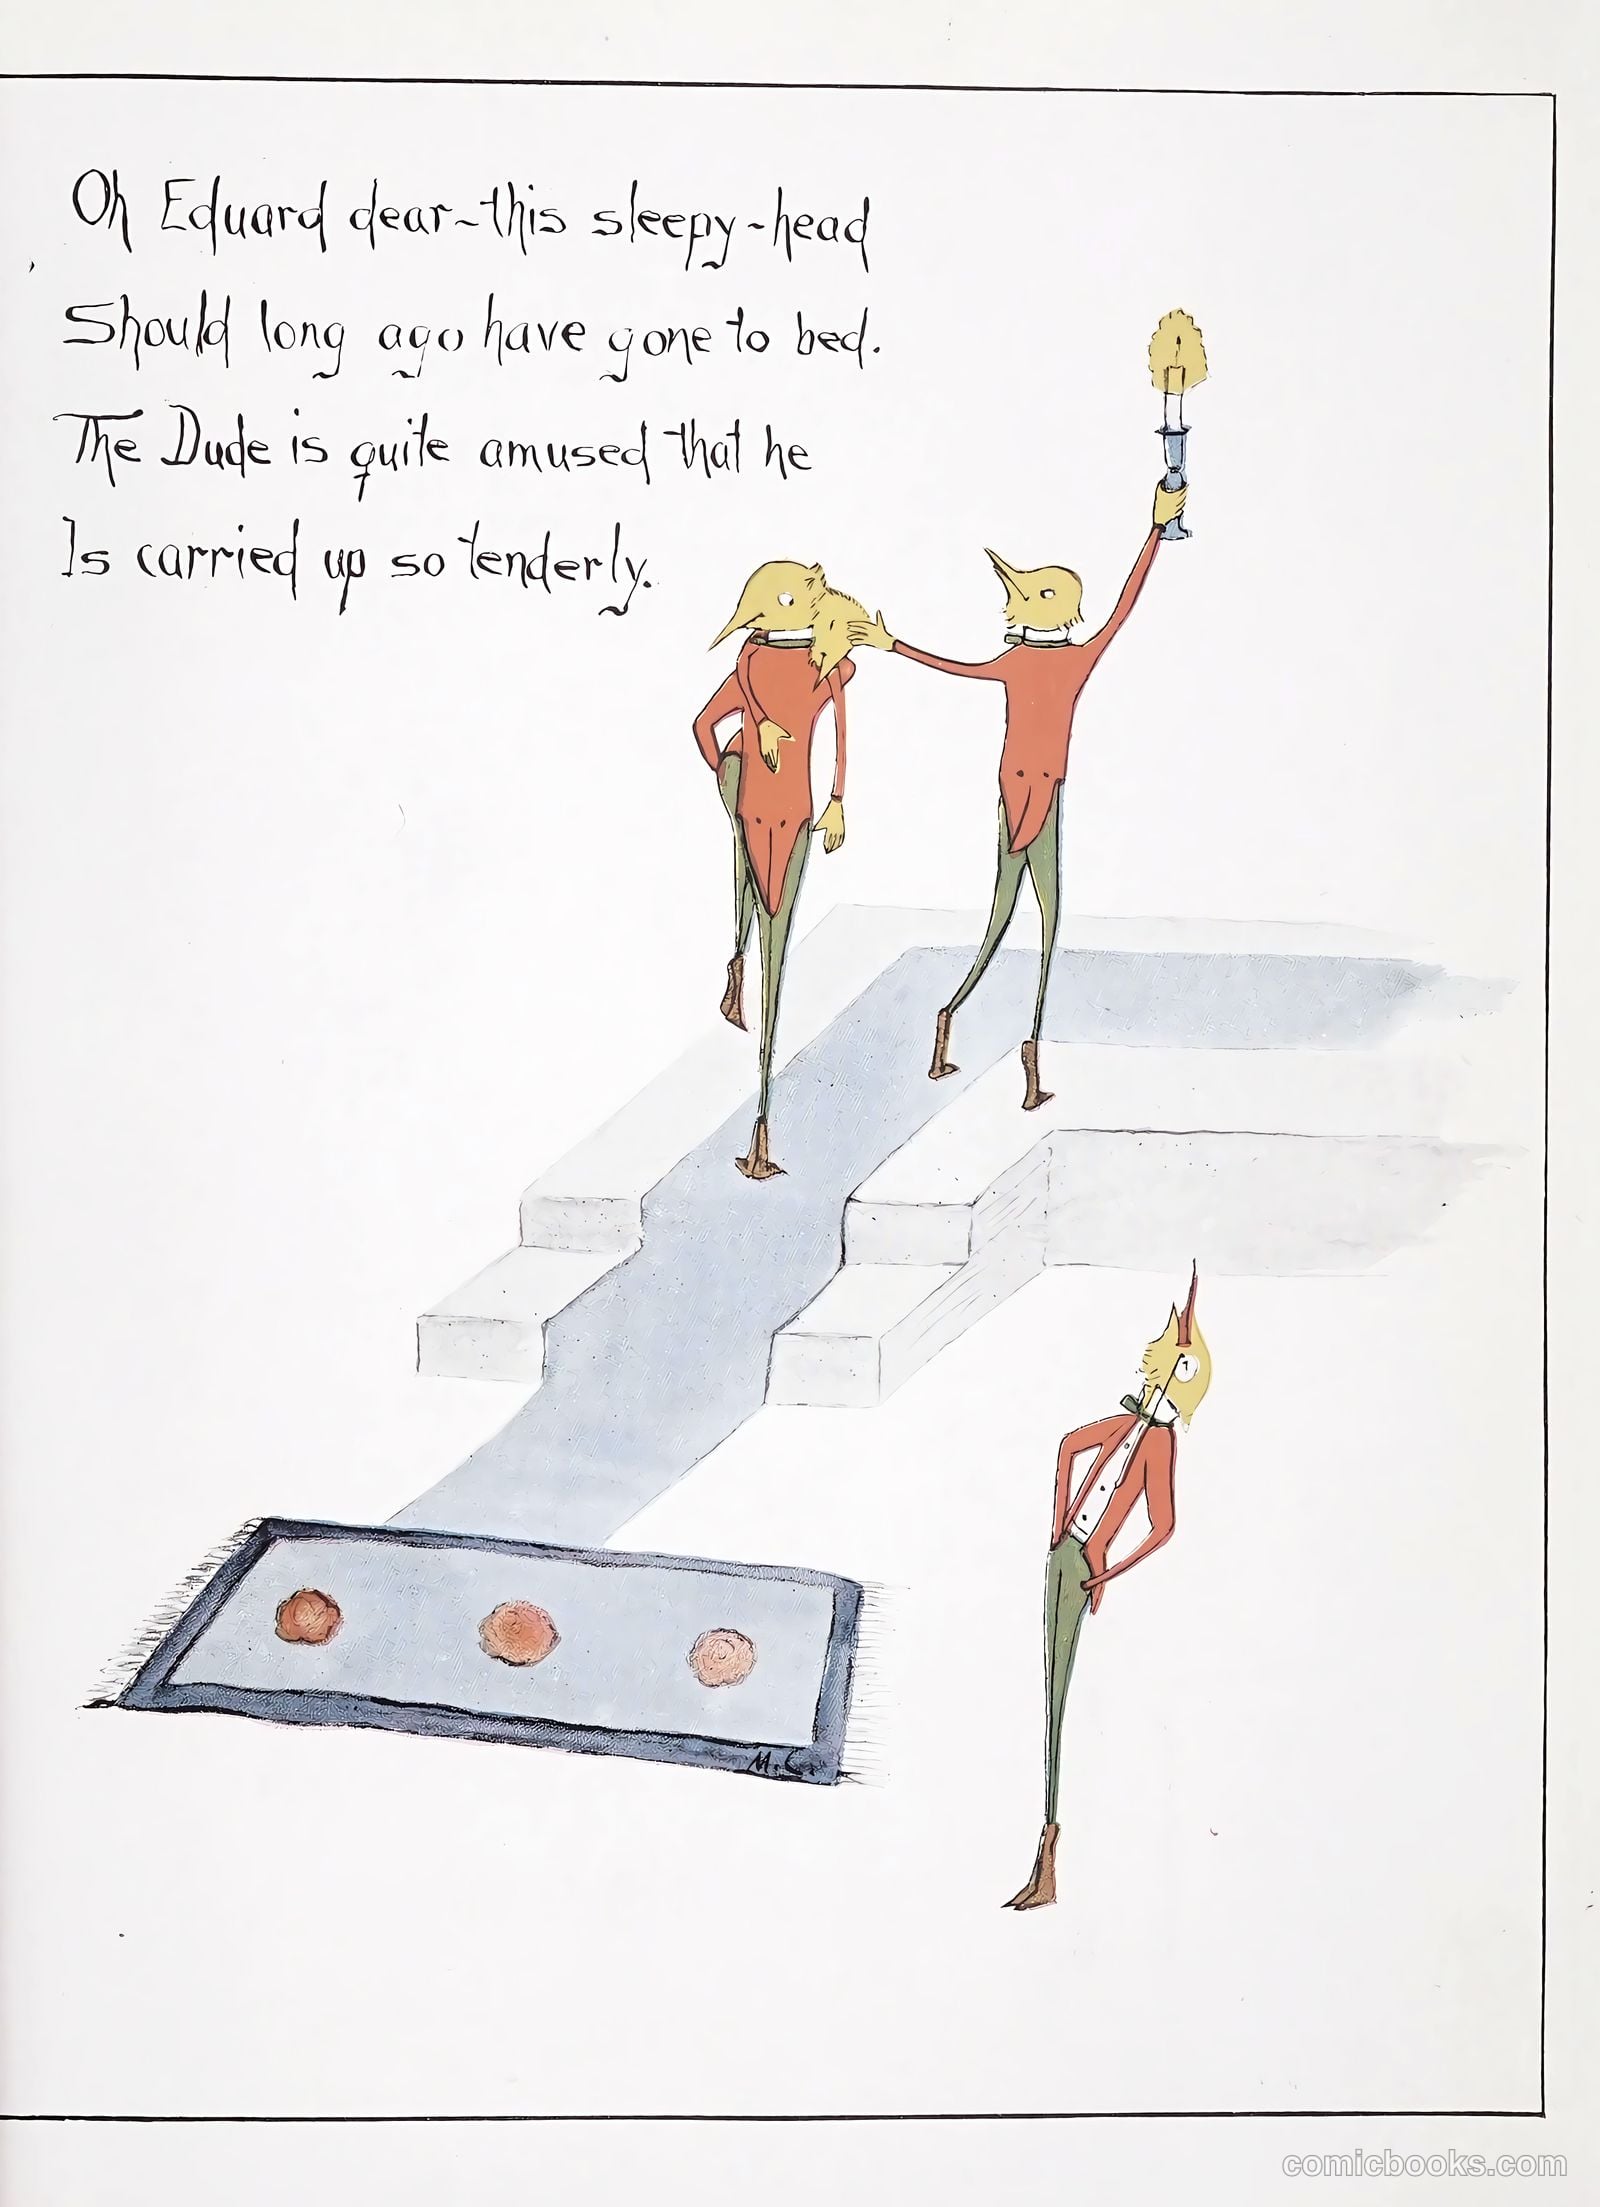 Oh Eduard dear~this sleepy-head
Should long ago have gone to bed.
The Dude is quite amused that he
Is carried up so tenderly.
M.C.
comicbooks.com